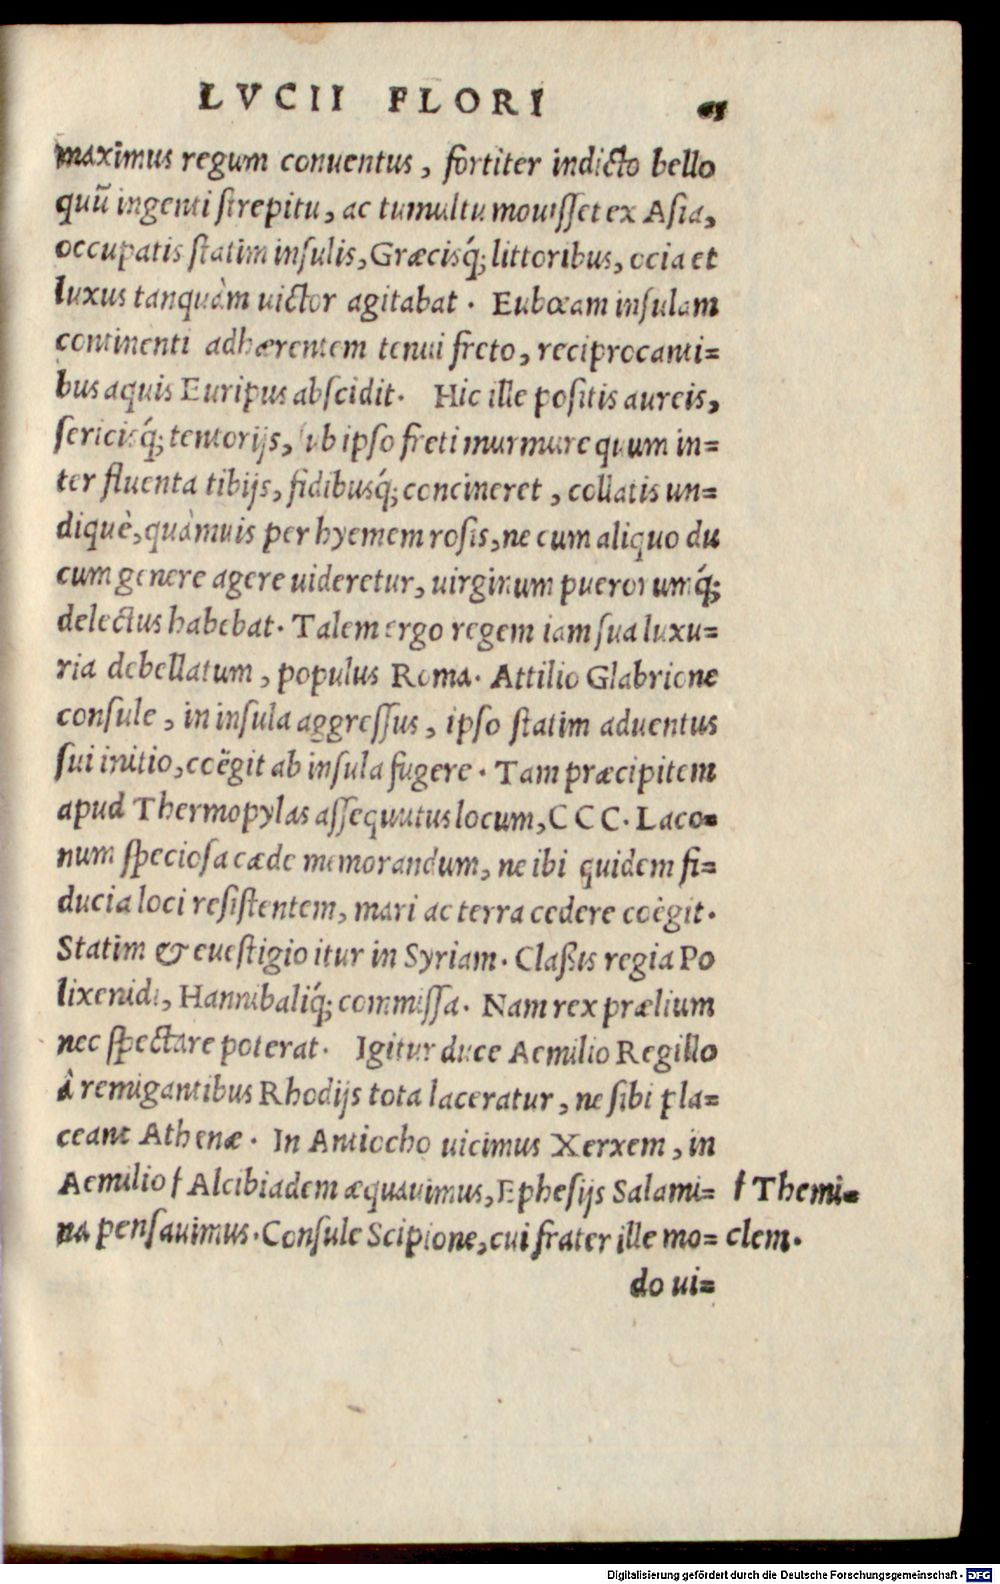 LVCII FLORI
maximus regum conuentus, fortiter indicto bello
quū ingenti ſtrepitu, ac tumultu mouiſſet ex Aſia,
occupatis ſtatim inſulis, Græcisq́; littoribus, ocia et
luxus tanquàm uictor agitabat. Eubœam inſulam
continenti adhærentem tenui freto, reciprocanti=
bus aquis Euripus abſcidit. Hic ille poſitis aureis,
ſericisq́; tentorijs, ſub ipſo freti murmure quum in=
ter fluenta tibijs, fidibusq́; concineret, collatis un=
diquè, quàmuis per hyemem roſis, ne cum aliquo du
cum genere agere uideretur, uirginum puerorumq́;
delectus habebat. Talem ergo regem iam ſua luxu=
ria debellatum, populus Roma. Attilio Glabrione
conſule, in inſula aggreſſus, ipſo ſtatim aduentus
ſui initio, coëgit ab inſula fugere. Tam præcipitem
apud Thermopylas aſſequutus locum, CCC. Laco=
num ſpecioſa cæde memorandum, ne ibi quidem fi=
ducia loci reſiſtentem, mari ac terra cedere coëgit.
Statim & eueſtigio itur in Syriam. Claßis regia Po
lixenidi, Hannibaliq́; commiſſa. Nam rex prælium
nec ſpectare poterat. Igitur duce Aemilio Regillo
à remigantibus Rhodijs tota laceratur, ne ſibi pla=
ceant Athenæ. In Antiocho uicimus Xerxem, in
Aemilio † Alcibiadem æquauimus, Epheſijs Salami= † Themi=
na penſauimus. Conſule Scipione, cui frater ille mo= clem.
do ui=
Digitalisierung gefördert durch die Deutsche Forschungsgemeinschaft - DFG